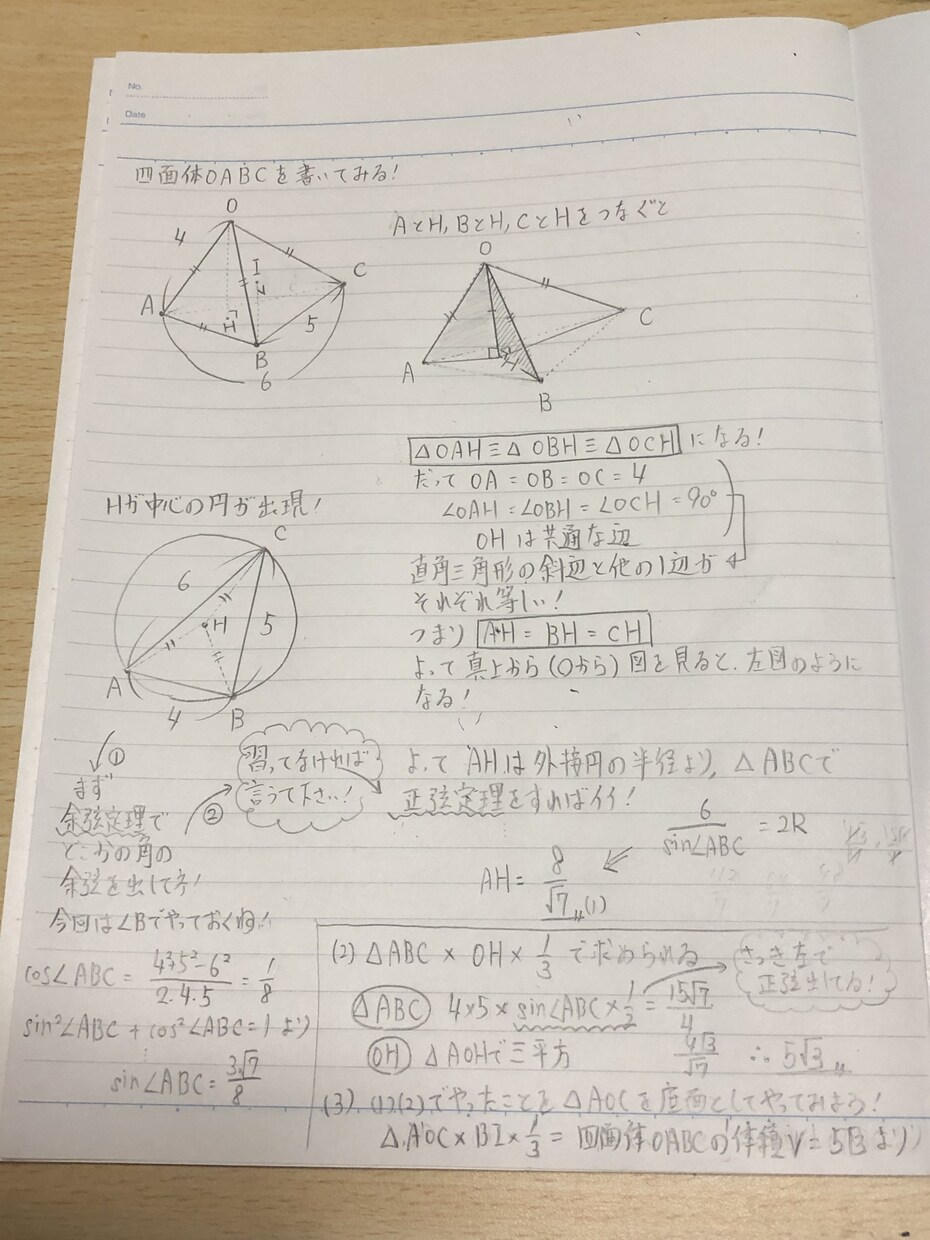 No.
Date
四面体OABCを書いてみる!
O
4
I
A
H
C
B
5
6
AとH,BとH,CとHをつなぐと
O
A
H
C
B
△OAH≡△OBH≡△OCH になる!
だって OA=OB=OC=4
∠OAH=∠OBH=∠OCH=90°
OHは共通な辺
直角三角形の斜辺と他の1辺が
それぞれ等しい!
つまり AH=BH=CH
よって真上から(Oから)図を見ると、左図のように
なる!
Hが中心の円が出現!
C
6
H
5
A
4
B
①
まず
余弦定理で
どこかの角の
余弦を出して方!
今回は∠Bでやっておくね!
cos∠ABC = 4²+5²-6²/2・4・5 = 1/8
sin²∠ABC + cos²∠ABC=1 より
sin∠ABC = 3√7/8
②
習ってなければ
言うて下さい!
よって AHは外接円の半径より, △ABCで
正弦定理をすればイイ!
6/sin∠ABC = 2R
AH= 8/√7 (1)
(2) △ABC × OH × 1/3 で求められる
さっき左で
正弦出してる!
△ABC 4×5×sin∠ABC×1/2 = 15√7/4
OH △AOHで三平方 4√3/√7 ∴ 5√3
(3). (1).(2)でやったことを△AOCを底面としてやってみよう!
△AOC×BI×1/3 = 四面体OABCの体積V=5√3より